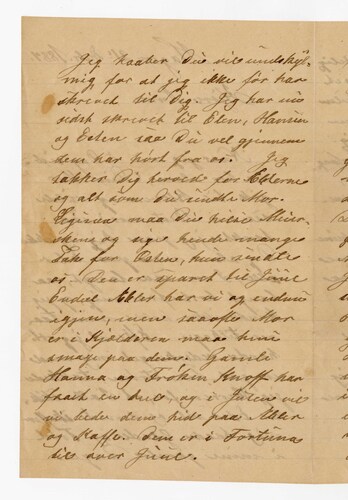 Jeg haaber Du vil undskyl-
mig for at jeg ikke før har
skrevet til Dig. Jeg har nu
sidst skrevet til Elen, Hansine
og Esten saa Du vel gjennem
dem har hørt fra os. Jeg
takker Dig herved for Æblerne
og alt som Du sendte Mor.
maa Du hilse
og sige hende mange
Tak for Osten, hun sendte
os. Den er sparet til Juul
Endel Æbler har vi og endnu
igjen, men saaofte Mor
er i Kjelderen maa hun
smage paa dem. Gamle
Hanna og Frøken Knoff har
faaet en del, og i Julen vil
vi bede dem hid paa Æbler
og Kaffe. Den er i Fortuna
til over Juul.